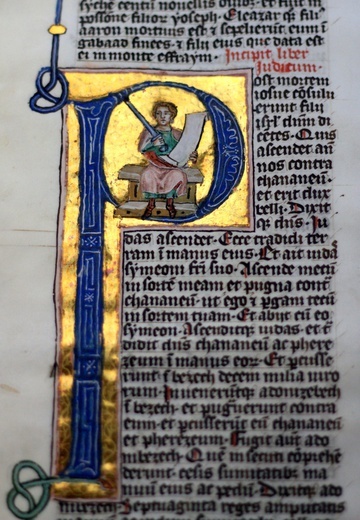 syche centū novellis ovibus et fuit in
possone filior yoseph. Eleazar qs fili
aaron mortuus est et sepelierūt eum ī
gabaad finees et filii eius que data est
ei in monte effraym. Incipit liber
Judicum.
Post mortem
iosue cōsulu
erunt filii
isrl dnm di
cētes. Quis
ascendet an
nos contra
chananeū.
et erit dux
belli. Dixit
qs dns. Ju
das ascendet. Ecce tradidi ter
ram ī manus eius. Et ait iudas
symeoni fr̄i suo. Ascende mecū
in sortē meam et pugna contra
chananeū. ut ego et pgam tecū
in sortem tuam. Et abiit cū eo
symeon. Ascenditqs iudas. et tra
didit dns chananeū ac phere
zeum ī manus eor. Et pcusse
runt ī bezech decem milia viro
rum. Inveneruntqs adonibezech
ī bezech. et pugnerunt contra
eum. et pcusserūt eū chananeū
et pherezeum. Fugit aut ado
nibezech. Que insecuti cōprehē
derunt. cesis sumitatibus ma
nuū eius ac pedū. Dixitqs ado
nibezech. Septuaginta reges amputatis